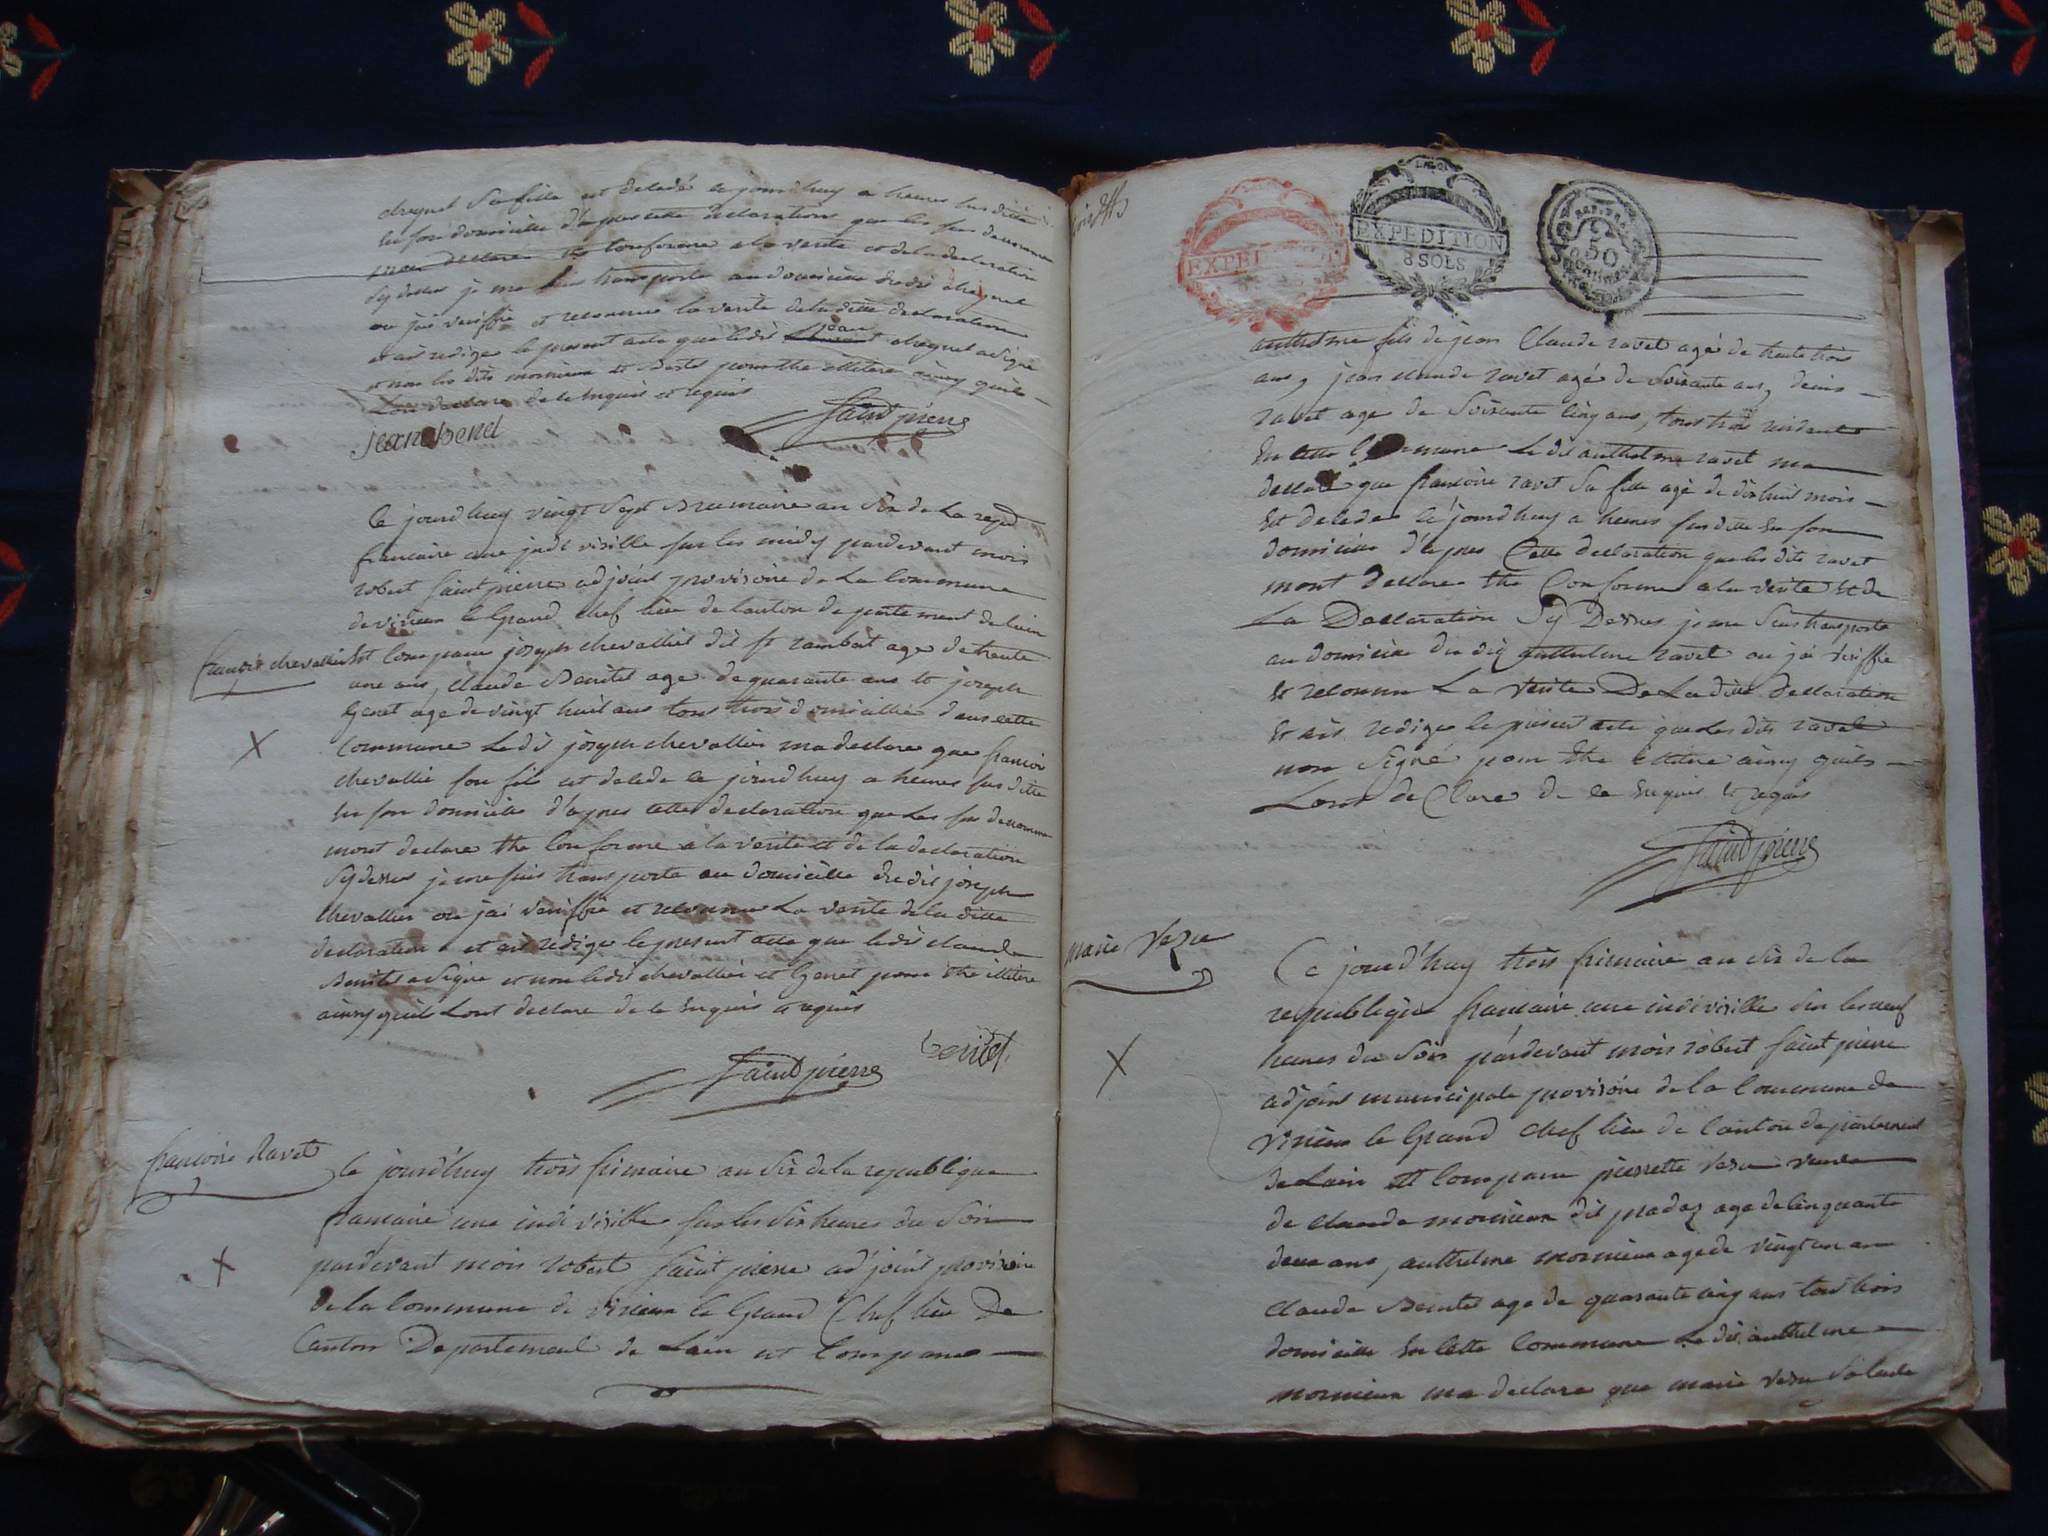 chegnet Sa fille est deledé ce jourdhuy a heures susditte
En son domicille d'apres cette declarations que les sus denomme
mon declare the Conforme a la verite et de la declaration
Sy dessus je me suis transporte au domicille du dit chegnet
ou jai veriffie et reconnue la verite de la ditte declaration
et ais redige le present acte que ledit jean chegnet a signé
et non les dits mornieux et pour the illitere ainsy quils
Lon declare de ce Enquis et requis
Saint pierre
Ce jourdhuy vingt Sept Brumaire an Six de La repub
francaire une indi visille sur les midy pardevant mois
robert Saint pierre adjoint provisoire de La Commune
de virieux le Grand chef lieu de Canton de partement de lain
françois chevallier
Est Compparu joseph chevallier dit st rambert age de trente
une ans, Claude Benitet age de quarante ans et joseph
Genet age de vingt huit ans tous trois domicillie dans cette
Commune Ledit joseph chevallier ma declare que francois
chevallie son fils est delede ce jourdhuy a heures sus ditte
En son domicille d'apres cette declaration que Les sus denomme
mont declare the Conforme a la verite et de la declaration
Sydessus je me suis transporte au domicille du dit joseph
chevallier ou jai veriffie et reconnue La verite de la ditte
declaration et ais redige le present acte que ledit claude
Benitet a Signe et non ledit chevallier et Genet pour the illitere
ainsy quil Lont declare de ce Enquis et requis
X
Benitet
Saint pierre
francoise Ravet
Ce jourd'huy trois frimaire an Six de la republique
francaire une indi visible sur les Six heures du Soir
pardevant mois robert Saint pierre ad'joint provisoire
de la Commune de virieux le Grand Chef lieu De
Canton Departement de Lain est Comparue
X
EXPEDITION
EXPEDITION
8 SOLS
REP. FRA.
50
Centimes
anthelme fils de jean Claude ravet agé de trente trois
ans, jean claude ravet agé de Soixante ans, denis
ravet age de Soixante Cinq ans, tous trois residents
En cette Commune Ledit anthelme ravet ma
declaré que francoise ravet Sa fille agé de dixhuit mois
Est deledee Ce jourdhuy a heures susditte En son
domicille d'apres Cette declaration que les dits ravet
mont declare the Conforme a la verite Et de
La Declaration Sy Dessus je me Suis transporte
au domicille du dit anthelme ravet ou jai veriffie
Et reconnu La verite De La ditte declaration
Et ais redige le present acte que Les dits ravet
non Signé pour the illitere ainsy quils
Lont de Clare de ce Enquis Et requis
Saint pierre
marie Vezu
Ce jourd'huy trois frimaire an Six de la
republique francaire une indivisille sur les neuf
heures du Soir pardevant mois robert Saint pierre
adjoint municipale provisoire de la Commune de
virieux le Grand Chef lieu de Canton departement
de Lain Est Comparue pierrette vezu veuve
de claude mornieux dit pradaz age de Cinquante
deux ans, anthelme mornieux age de vingt un an
claude Benitet age de quarante cinq ans tous trois
domicille En cette Commune Le dit anthelme
mornieux ma declare que marie vezu Sa tante
X